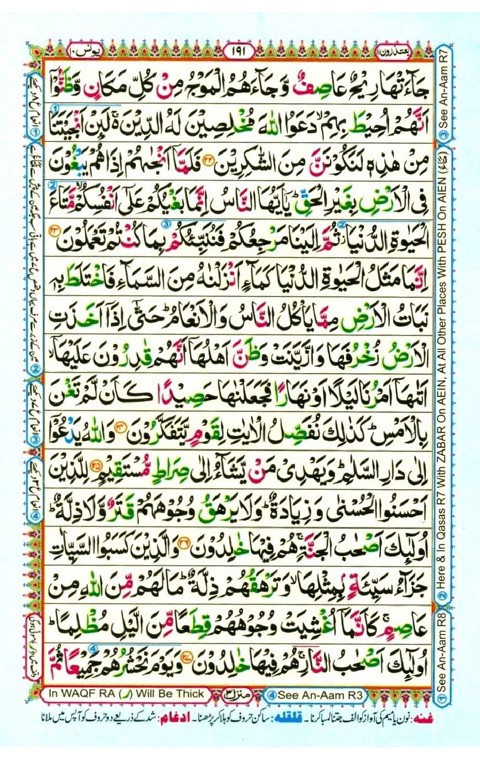 یونس ۱۰
۱۹۱
یعتذرون ۱۱
جَآءَتْهَا رِيْحٌ عَاصِفٌ وَّجَآءَهُمُ الْمَوْجُ مِنْ كُلِّ مَكَانٍ وَّظَنُّوْۤا
اَنَّهُمْ اُحِيْطَ بِهِمْ ۙ دَعَوُا اللّٰهَ مُخْلِصِيْنَ لَهُ الدِّيْنَ ۚ۬ لَئِنْ اَنْجَيْتَنَا
مِنْ هٰذِهٖ لَنَكُوْنَنَّ مِنَ الشّٰكِرِيْنَ ﴿۲۲﴾ فَلَمَّاۤ اَنْجٰىهُمْ اِذَا هُمْ يَبْغُوْنَ
فِى الْاَرْضِ بِغَيْرِ الْحَقِّ ؕ يٰۤاَيُّهَا النَّاسُ اِنَّمَا بَغْيُكُمْ عَلٰٓى اَنْفُسِكُمْ ۙ مَّتَاعَ
الْحَيٰوةِ الدُّنْيَا ؗ ثُمَّ اِلَيْنَا مَرْجِعُكُمْ فَنُنَبِّئُكُمْ بِمَا كُنْتُمْ تَعْمَلُوْنَ ﴿۲۳﴾
اِنَّمَا مَثَلُ الْحَيٰوةِ الدُّنْيَا كَمَآءٍ اَنْزَلْنٰهُ مِنَ السَّمَآءِ فَاخْتَلَطَ بِهٖ
نَبَاتُ الْاَرْضِ مِمَّا يَاْكُلُ النَّاسُ وَالْاَنْعَامُ ؕ حَتّٰۤى اِذَاۤ اَخَذَتِ
الْاَرْضُ زُخْرُفَهَا وَازَّيَّنَتْ وَظَنَّ اَهْلُهَاۤ اَنَّهُمْ قٰدِرُوْنَ عَلَيْهَاۤ ۙ
اَتٰىهَاۤ اَمْرُنَا لَيْلًا اَوْ نَهَارًا فَجَعَلْنٰهَا حَصِيْدًا كَاَنْ لَّمْ تَغْنَ
بِالْاَمْسِ ؕ كَذٰلِكَ نُفَصِّلُ الْاٰيٰتِ لِقَوْمٍ يَّتَفَكَّرُوْنَ ﴿۲۴﴾ وَاللّٰهُ يَدْعُوْۤا
اِلٰى دَارِ السَّلٰمِ ؕ وَيَهْدِىْ مَنْ يَّشَآءُ اِلٰى صِرَاطٍ مُّسْتَقِيْمٍ ﴿۲۵﴾ لِلَّذِيْنَ
اَحْسَنُوا الْحُسْنٰى وَزِيَادَةٌ ؕ وَلَا يَرْهَقُ وُجُوْهَهُمْ قَتَرٌ وَّلَا ذِلَّةٌ ؕ
اُولٰٓئِكَ اَصْحٰبُ الْجَنَّةِ ۚ هُمْ فِيْهَا خٰلِدُوْنَ ﴿۲۶﴾ وَالَّذِيْنَ كَسَبُوا السَّيِّاٰتِ
جَزَآءُ سَيِّئَةٍۭ بِمِثْلِهَا ۙ وَتَرْهَقُهُمْ ذِلَّةٌ ؕ مَا لَهُمْ مِّنَ اللّٰهِ مِنْ
عَاصِمٍ ۚ كَاَنَّمَاۤ اُغْشِيَتْ وُجُوْهُهُمْ قِطَعًا مِّنَ الَّيْلِ مُظْلِمًا ؕ
اُولٰٓئِكَ اَصْحٰبُ النَّارِ ۚ هُمْ فِيْهَا خٰلِدُوْنَ ﴿۲۷﴾ وَيَوْمَ نَحْشُرُهُمْ جَمِيْعًا ثُمَّ
③ See An-Aam R7
② Here & In Qasas R7 With ZABAR On AEIN, At All Other Places With PESH On AIEN
① See An-Aam R8
In WAQF RA (ر) Will Be Thick
منزل ۳
④ See An-Aam R3
غنه: نون یا میم کی آواز کو الف جتنا لمبا کرنا۔ قلقله: ساکن حروف کو ہلا کر پڑھنا۔ ادغام: شد کے ذریعے دو حروف کو آپس میں ملانا